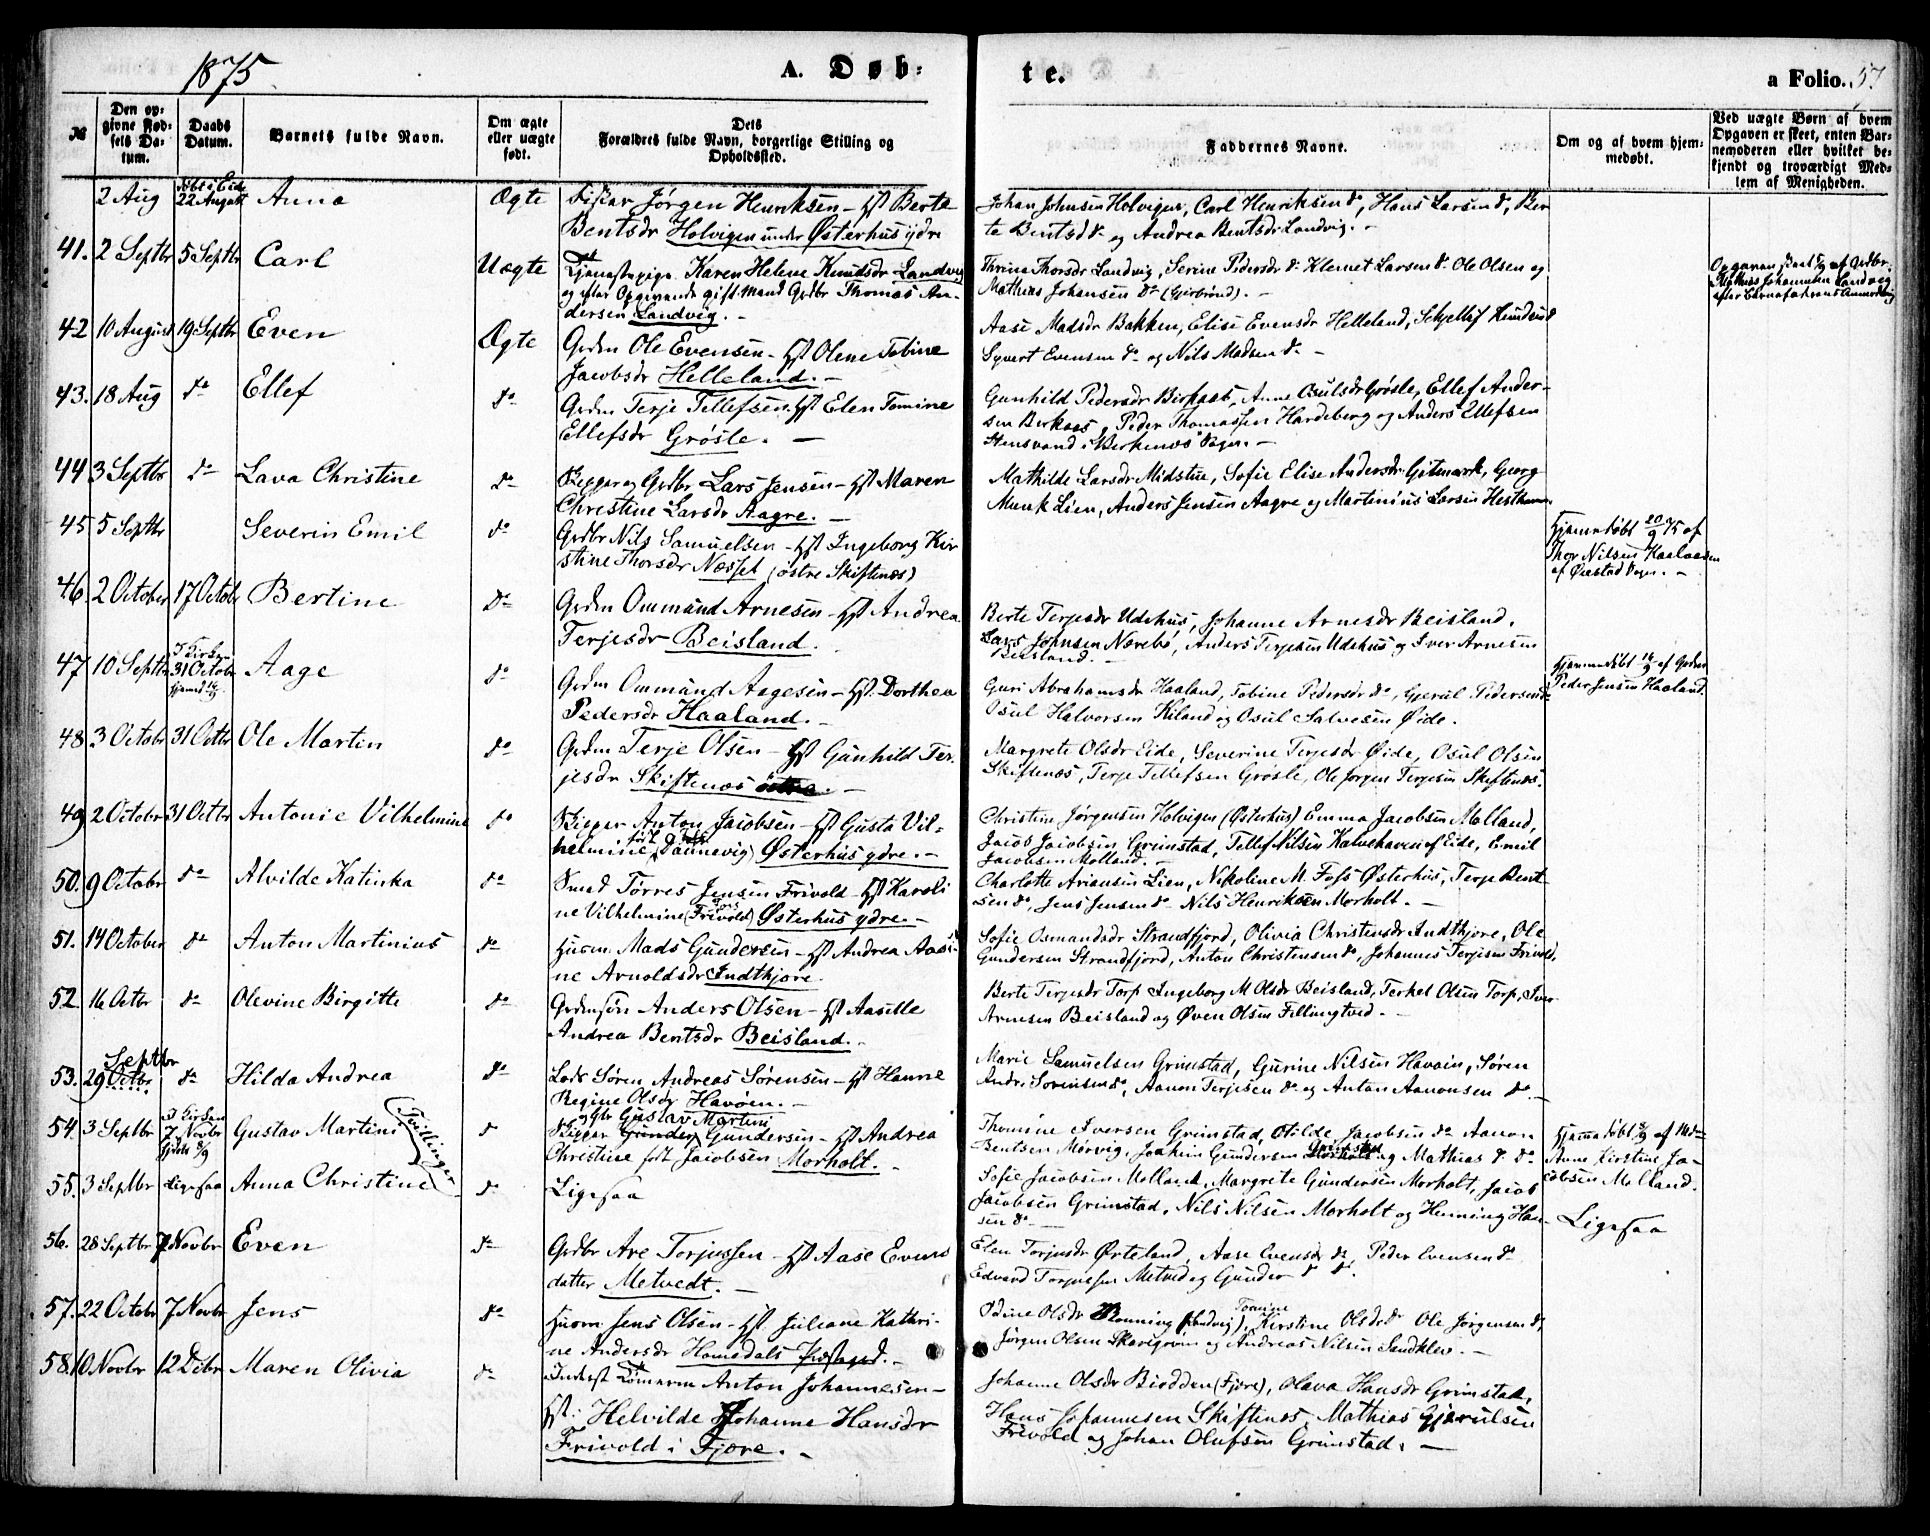 1875
A. Døb-
te.
a Folio. 57
№
Den op-
givne Fød-
sels Da-
tum.
Daabs
Datum.
Barnets fulde Navn.
Om ægte
eller uægte
født.
Dets
Forældres fulde Navn, borgerlige Stilling og
Opholdssted.
Faddernes Navne.
Om og af hvem hjem-
medøbt.
Ved uægte Børn af hvem
Opgaven er skeet, enten Bar-
nemoderen eller hvilket be-
kjendt og troværdigt Med-
lem af Menigheden.
2 Aug
døbt i Eide
22 August
Anna
Ægte
Fisker Jørgen Henriksen – Hst Berte
Bentsdr Holvigen under Østerhus ydre
Johan Johnsen Holvigen, Carl Henriksen do, Hans Larsen do, Ber-
te Bentsd do og Andrea Bentsdr Landvig. –
41. 2 Septbr 5 Septbr Carl Uægte
Tjenestepige Karen Helene Knudsdr Landvig
og efter Opgivende gift Mand Grdbr Thomas An-
dersen Landvig. –
Thrine Thorsdr Landvig, Serine Pedersdr do Klemet Larsen do Ole Olsen og
Mathias Johansen do (Gjerbrønd). –
Opgaven skeet 5/9 af Grdbr
Mathias Johannsen Landvig
efter Barnefaderens Anmodnig
42 10 August 19 Septbr Even Ægte
Grdm Ole Evensen – Hst Olene Tobine
Jacobsdr Helleland. –
Aase Madsdr Bakken, Elise Evensdr Helleland, Schjellef Knudsen do
Syvert Evensen do og Nils Madsen do –
43. 18 Aug do Ellef do
Grdm Terje Tellefsen Hst Elen Tomine
Ellefsdr Grøsle. –
Gunhild Pedersdr Birkaas, Anne Osulsdr Grøsle, Ellef Ander-
sen Berkaas, Peder Thomassen Hardeberg og Anders Ellefsen
Stensvand i Berkenæs Sogn. –
44 3 Septbr do Lava Christine do
Skipper og Grdbr Lars Jensen – Hst Maren
Christine Larsdr Aagre. –
Mathilde Larsdr Midstue, Sofie Elise Andersdr Gitmark, Georg
Munk Lien, Anders Jensen Aagre og Martinius Larsen Hesthammer
45 5 Septbr Severin Emil do
Grdbr Nils Samuelsen – Hst Ingeborg Kir-
stine Thorsdr Næsset (østre Skiftenæs)
Hjemmedøbt 20/9 75 af
Thor Nilsen Haalaasen
af Øiestad Sogn. –
46. 2 October 17 Octobr Bertine do
Grdm Ommund Arnesen – Hst Andrea
Terjesdr Beisland. –
Berte Terjesdr Udehus, Johanne Arnesdr Beisland,
Lars Johnsen Nærebø, Anders Terjesen Udehus og Iver Arnesen
Beisland. –
47 10 Septbr
I Kirken
31 Octobr
hjemd 14/9
Aage do
Grdm Ommund Aagesen – Hst. Dorthea
Pedersdr Haaland. –
Guri Abrahamsdr Haaland, Tobine Pedersdr do, Gjerul Pedersen do
Osul Halvorsen Kiland og Osul Salvesen Øide.
Hjemmedøbt 14/9 af Grdm
Peder Jensen Haaland
48 3 Octobr 31 Octbr Ole Martin do
Grdm Terje Olsen – Hst Gunhild Ter-
jesdr Skiftenæs. –
Margrete Olsdr Eide, Severine Terjesdr Øide, Osul Olsen
Skiftenæs, Terje Tellefsen Grøsle, Ole Jørgen Terjesen Skiftenæs.
49 2 Octobr 31 Octbr Antonie Vilhelmine do
Skipper Anton Jacobsen – Hst Gusta Vil-
helmine (født Dannevig) Østerhus ydre. –
Christine Jørgensen Holvigen (Østerhus) Emma Jacobsen Molland,
Jacob Jacobsen Grimstad, Tellef Nilsen Kalvehaven af Eide, Emil
Jacobsen Molland. –
50. 9 Octobr do Alvilde Katinka do
Smed Tørres Jensen Frivold – Hst Karoli-
ne Vilhelmine (Frivold) Østerhus ydre. –
Charlotte Ariansen Lien, Nikoline M. Foss Østerhus, Terje Bent-
sen do, Jens Jensen do Nils Henriksen Morholt. –
51. 14 October do Anton Martinius do
Husm. Mads Gundersen – Hst Andrea Aasi-
ne Arnoldsdr Indtkjøre.
Sofie Osmandsdr Strandfjord, Olivia Christensdr Indtkjøre, Ole
Gundersen Strandfjord, Anton Christensen do, Johannes Terjesen Frivold,
52 16 Octbr do Olevine Birgitte do
Grdmsøn Anders Olsen – Hst Aasille
Andrea Bentsdr Beisland. –
Berte Terjesdr Torp Ingeborg M Olsdr Beisland, Terkel Olsen Torp, Iver
Arnesen Beisland og Øven Olsen Fillingtved. –
Septbr
53. 29 Octbr. do Hilda Andrea do
Lods Søren Andreas Sørensen – Hst Hanne
Regine Olsdr Havøen. –
Marie Samuelsen Grimstad, Gurine Nilsen Havøin, Søren
Andr. Sørensen do, Aanon Terjesen do og Anton Aanonsen do –
54. 3 Septbr
I Kirken
7 Novbr
Gustav Martin (Tvillinger) do
og Gbr Gustav Martin
Skipper Gunder Gundersen – Hst Andrea
Christine født Jacobsen Morholt. –
Thomine Iversen Grimstad, Otilde Jacobsen do Aanon
Bentsen Mørvig, Joakim Gundersen Grimstad og Mathias do do
Hjemmedøbt 8/9 af
Anne Kirstine Ja-
cobsen Molland.
55. 3 Septbr Ligesaa Anna Christine do
Ligesaa
Sofie Jacobsen Molland, Margrete Gundersen Morholt, Jacob
Jacobsen Grimstad, Nils Nilsen Morholt og Henning Han-
sen do –
Ligesaa
56. 28 Septbr 7 Novbr Even do
Grdbr Are Torjussen – Hst Aase Evens
datter Metvedt. –
Elen Torjusdr Ørteland, Aase Evensdr do Peder Evensen do
Edvard Torjussen Metved og Gunder do do.
57. 22 Octobr 7 Novbr Jens do
Husm. Jens Olsen – Hst. Juliane Kathri-
ne Andersdr Homedals Præstegrd. –
Odine Olsdr Rønning (Landvig), Tomine Kirstine Olsdr do Ole Jørgensen do,
Jørgen Olsen Skaregrøm og Andreas Nilsen Sandklev. –
58. 10 Novbr 12 Debr Maren Olivia do
Inderst Tømmerm Anton Johannesen –
Hst. Helvilde Johanne Hansdr
Frivold i Fjøre. –
Johanne Olsdr Biodden (Fjøre), Olava Hansdr Grimstad,
Hans Johannesen Skiftenæs, Mathias Gjerulsen
Frivold og Johan Olufsen Grimstad. –